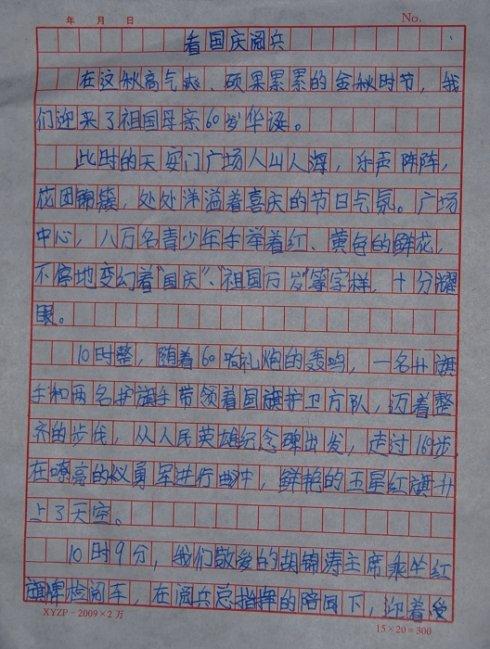 年 月 日 No.
看国庆阅兵
在这秋高气爽、硕果累累的金秋时节，我
们迎来了祖国母亲60岁华诞。
此时的天安门广场人山人海，乐声阵阵，
花团锦簇，处处洋溢着喜庆的节日气氛。广场
中心，八万名青少年手举着红、黄色的鲜花，
不停地变幻着“国庆”、“祖国万岁”等字样，十分耀
眼。
10时整，随着60响礼炮的轰鸣，一名升旗
手和两名护旗手带领着国旗护卫方队，迈着整
齐的步伐，从人民英雄纪念碑出发，走过169步，
在嘹亮的义勇军进行曲中，鲜艳的五星红旗升
上了天空。
10时9分，我们敬爱的胡锦涛主席乘坐红
旗牌检阅车，在阅兵总指挥的陪同下，迎着受
XYZP－2009×2万 15×20＝300